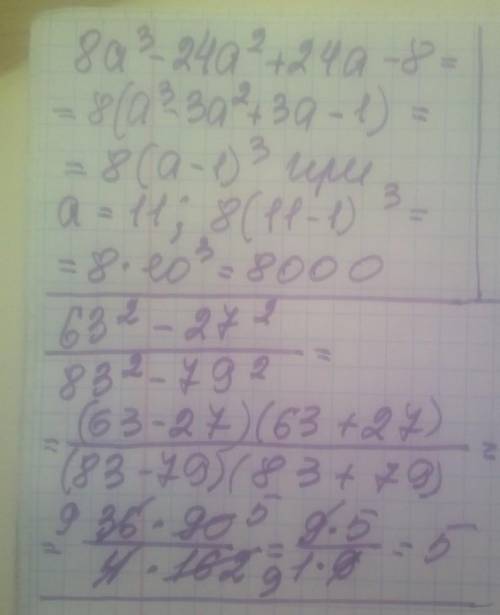 8a³ - 24a² + 24a - 8 =
= 8(a³ - 3a² + 3a - 1) =
= 8(a - 1)³ при
a = 11; 8(11 - 1)³ =
= 8 · 10³ = 8000
63² - 27²
83² - 79² =
= (63 - 27)(63 + 27)
(83 - 79)(83 + 79) =
= 9 36 · 90 5
4 · 162 9 = 9 · 5
1 · 9 = 5